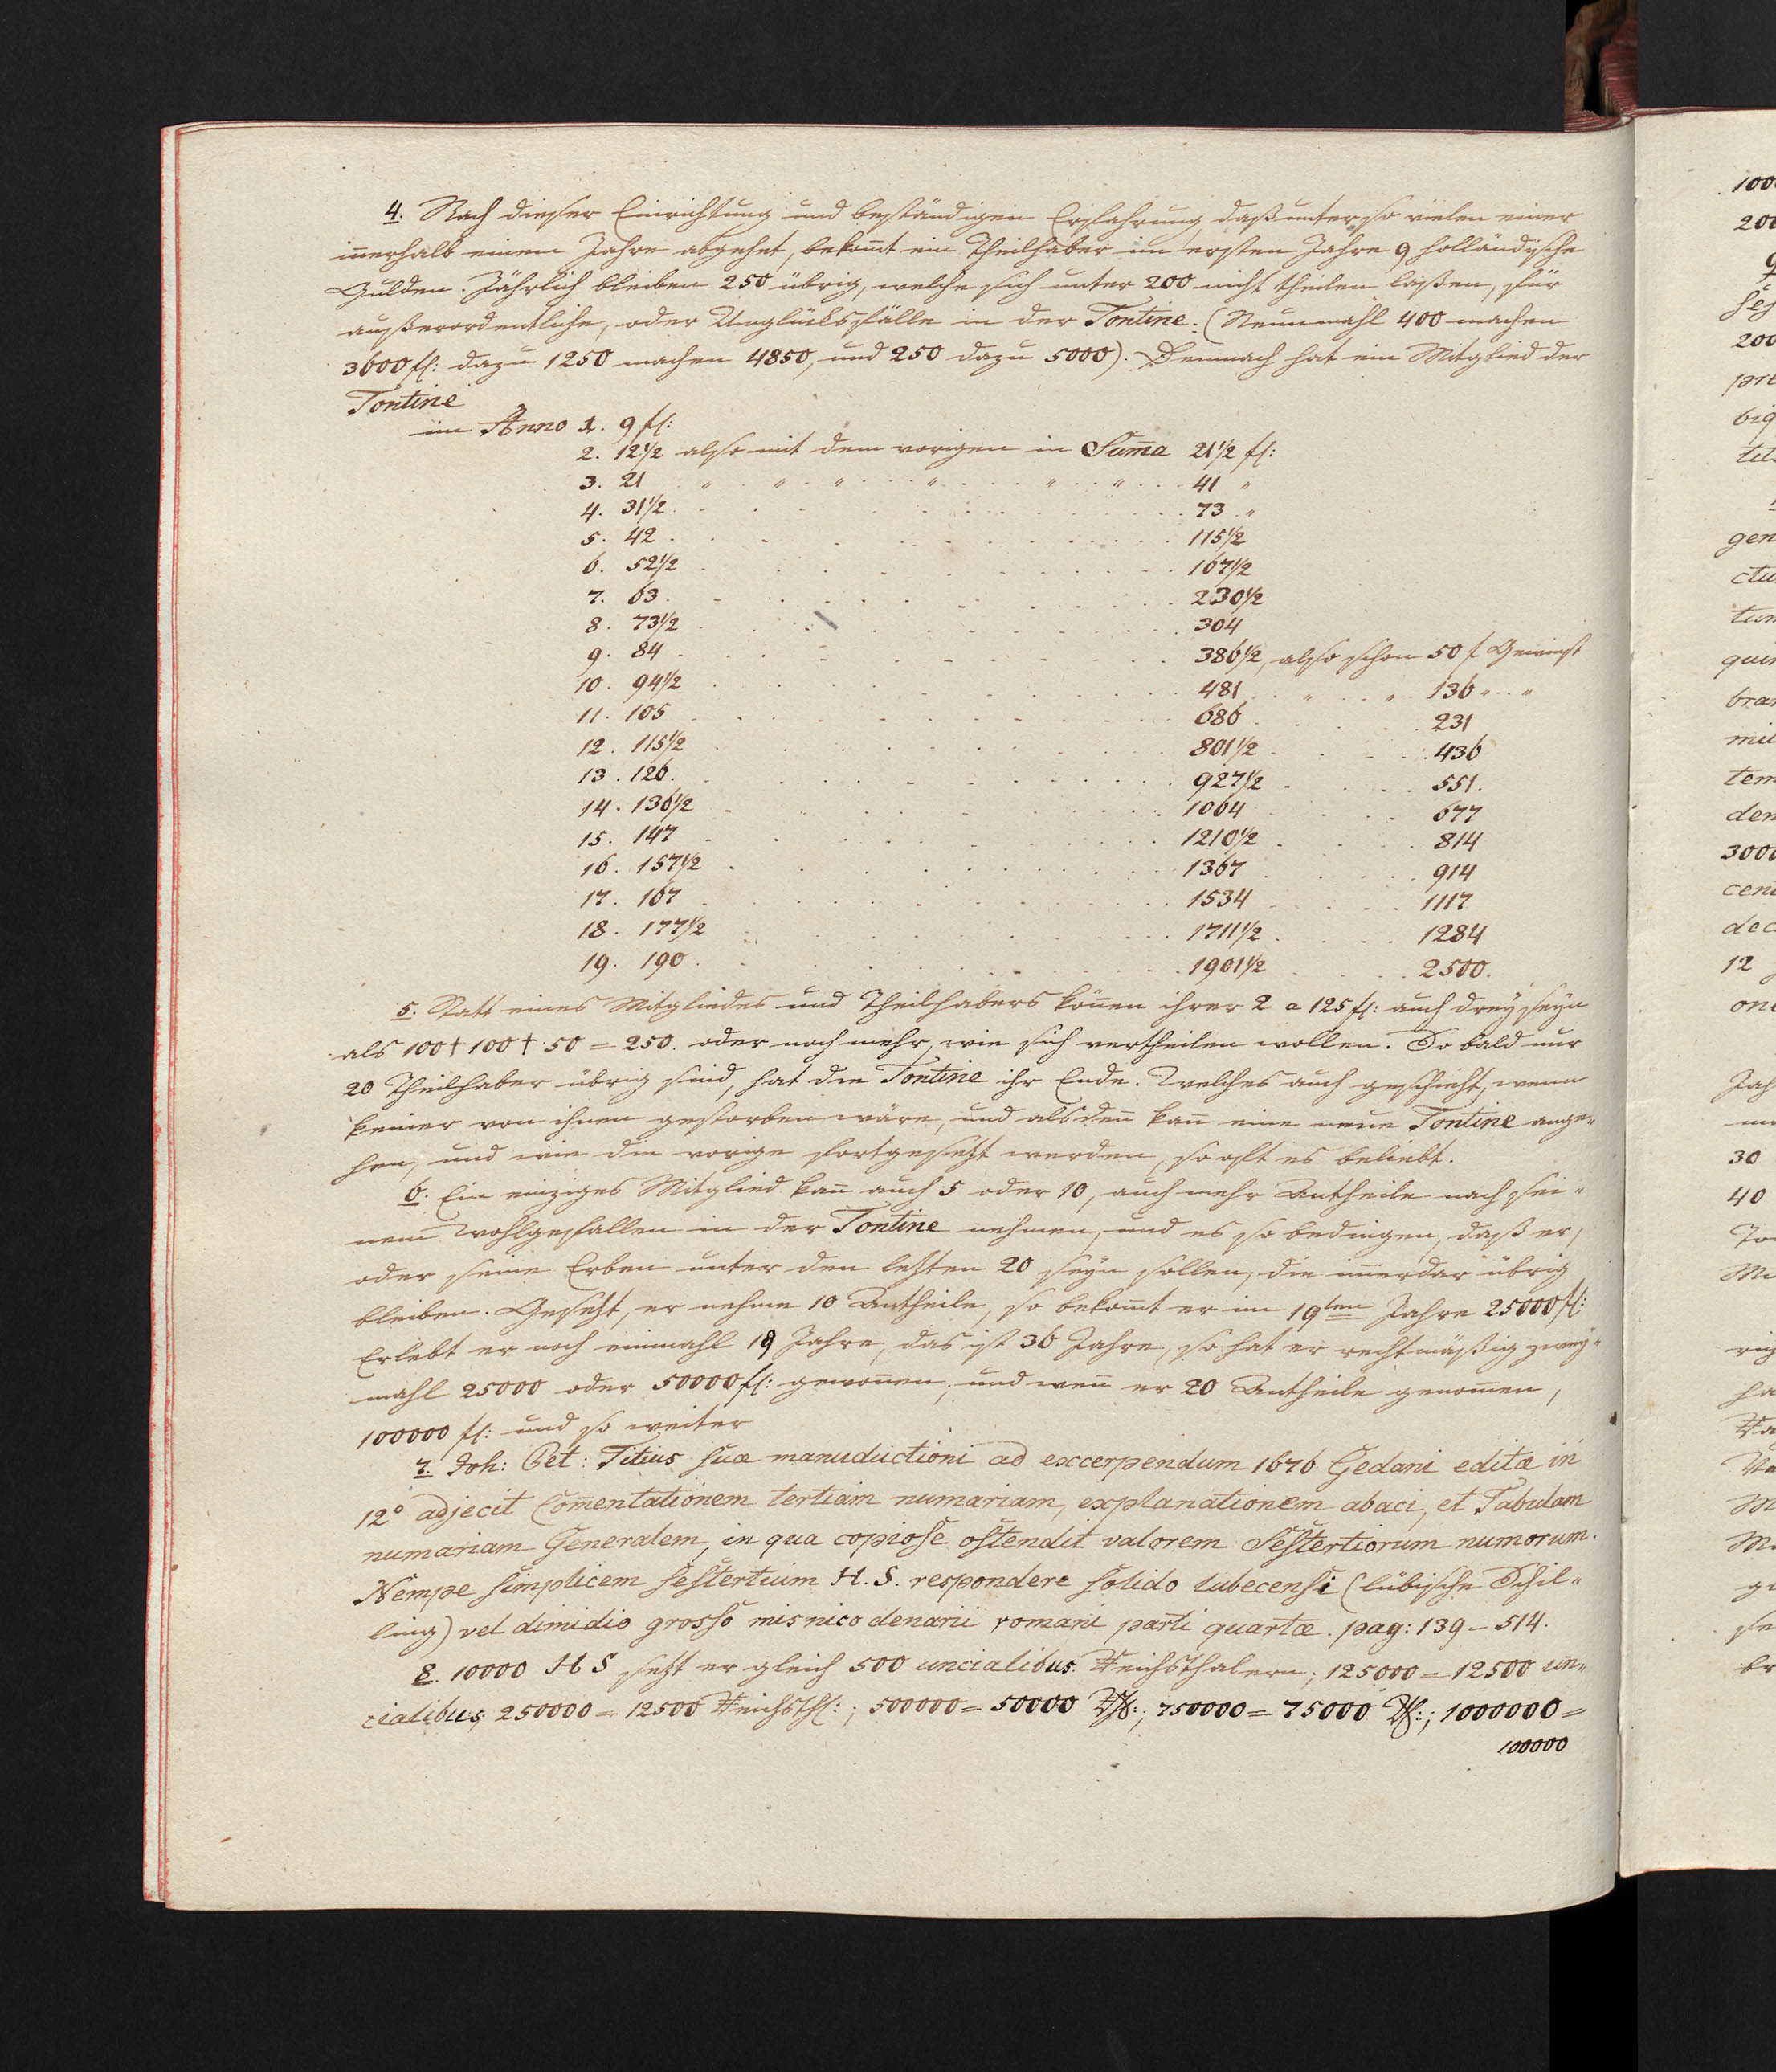 4. Nach dieser Einrichtung und beständigen Erfahrung daß unter so vielen einer
iñerhalb einem Jahre abgehet, bekom̃t ein Theilhaber im ersten Jahre 9 holländische
Gulden. Jährlich bleiben 250 übrig, welche sich unter 200 nicht theilen laßen, für
außerordentliche, oder Unglücksfälle in der Tontine: (Neunmahl 400 machen
3600 fl: dazu 1250 machen 4850, und 250 dazu 5000). Demnach hat ein Mitglied der
Tontine
im Anno 1. 9 fl:
2. 12½ also mit dem vorigen in Sum̃a 21½ fl:
3. 21 " " " " " " 41 "
4. 31½ 73 "
5. 42 115½
6. 52½ 167½
7. 63 230½
8. 73½ 304
9. 84 386½, also schon 50 f Gewinst
10. 94½ 481 " " 136 " "
11. 105 686 231
12. 115½ 801½ 436
13. 126. 927½ 551.
14. 136½ 1064 677
15. 147 1210½ 814
16. 157½ 1367 914
17. 167 1534 1117
18. 177½ 1711½ 1284
19. 190 1901½ 2500.
5. Statt eines Mitgliedes und Theilhabers köñen ihrer 2 a 125 fl: auch drey seyn
als 100 + 100 + 50 = 250. oder noch mehr, wie sich vertheilen wollen. So bald nur
20 Theilhaber übrig sind, hat die Tontine ihr Ende. Welches auch geschieht, wenn
keiner von ihnen gestorben wäre, und alsdeñ kañ eine neue Tontine ange-
hen, und wie die vorige fortgesetzt werden, so oft es beliebt.
6. Ein einziges Mitglied kañ auch 5 oder 10, auch mehr Antheile nach sei-
nem Wohlgefallen in der Tontine nehmen, und es so bedingen, daß er,
oder seine Erben unter den letzten 20 seyn sollen, die im̃erdar übrig
bleiben. Gesetzt, er nehme 10 Antheile, so bekom̃t er im 19ten Jahre 25000 fl:
Erlebt er noch einmahl 19 Jahre, das ist 36 Jahre, so hat er rechtmäßig zwey-
mahl 25000 oder 50000 fl: gewoñen; und weñ er 20 Antheile genom̃en,
100000 fl: und so weiter
7. Joh: Pet: Titius suæ manuductioni ad exccerpendum 1676 Gedani editæ in
12° adjecit Com̃entationem tertiam numariam, explanationem abaci, et Tabulam
numariam Generalem, in qua copiose ostendit valorem Sestertiorum numorum.
Nempe simplicem sestertium H. S. respondere solido lubecensi (lübische Schil-
ling) vel dimidio grosso misnico denarii romani parti quartæ. pag: 139 - 514.
8. 10000 H S setzt er gleich 500 uncialibus Reichsthalern; 125000 = 12500 un-
cialibus; 250000 = 12500 Reichsthl:; 500000 = 50000 Rthl:; 750000 = 75000 Rthl:; 1000000 =
100000